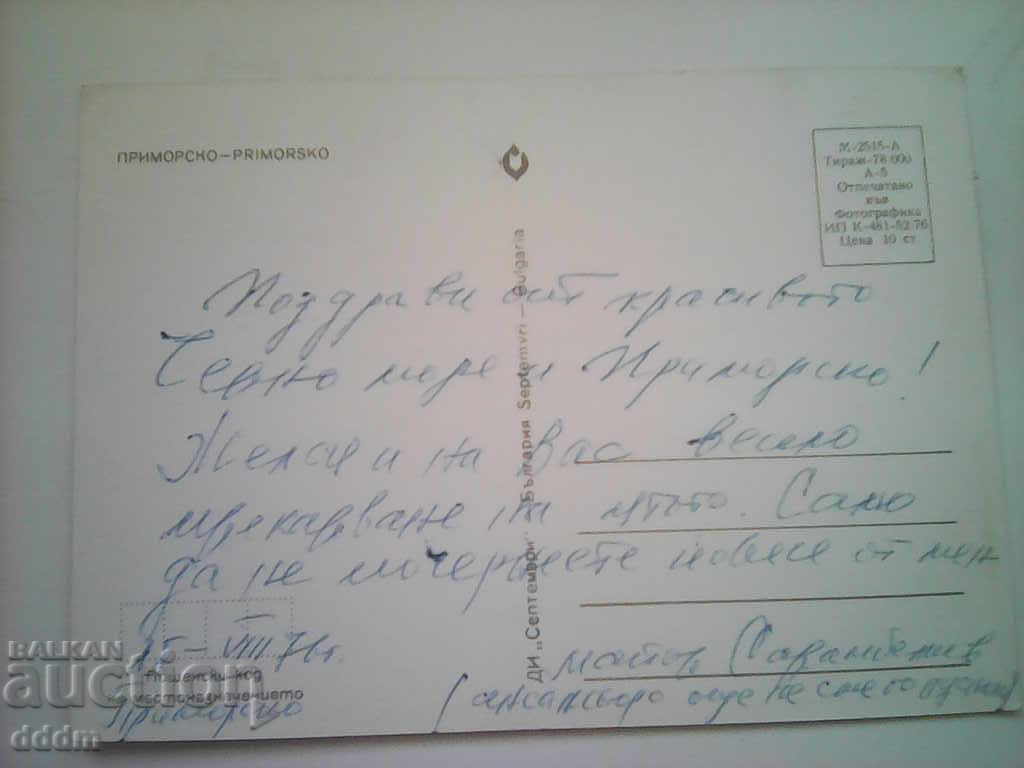 ПРИМОРСКО – PRIMORSKO
М-2515-А
Тираж-78 000
А-5
Отпечатано
във
Фотографика
ИП К-481-52/76
Цена 10 ст
ДИ „Септември“ България Septemvri – Bulgaria
Поздрави от красивото
Черно море и Приморско!
Желая и на Вас весело
прекарване на лятото. Само
да не почернеете повече от мен
15-VIII.76г.
Приморско
Пощенски код
местоназначението
майор
(ансамбъла още не сме го
BALKAN
auction
dddm